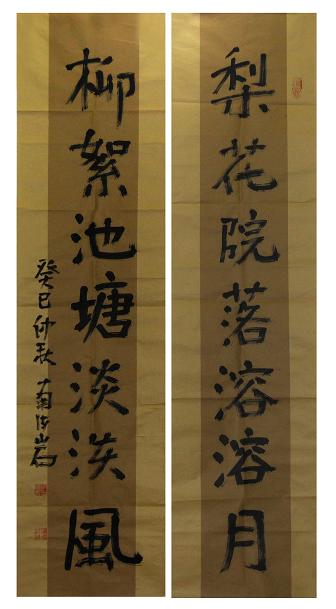 梨花院落溶溶月
柳絮池塘淡淡風
癸巳仲秋